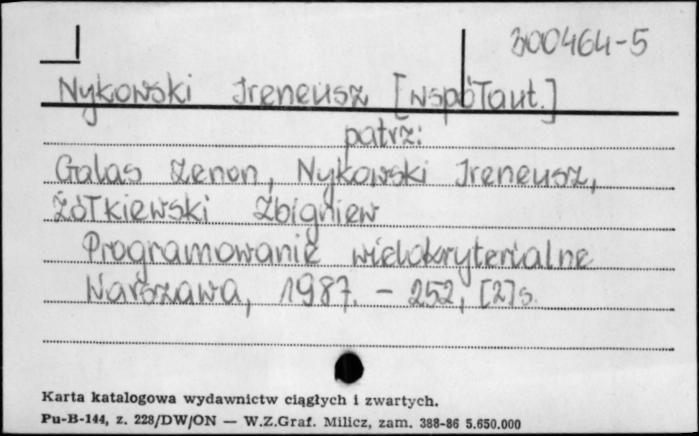 300464-5
Nykowski Ireneusz [współaut.]
patrz:
Galas Zenon, Nykowski Ireneusz,
Żółkiewski Zbigniew
Programowanie wielokryterialne
Warszawa, 1987. - 252, [2] s.
Karta katalogowa wydawnictw ciągłych i zwartych.
Pu-B-144, z. 228/DW/ON — W.Z.Graf. Milicz, zam. 388-86 5.650.000